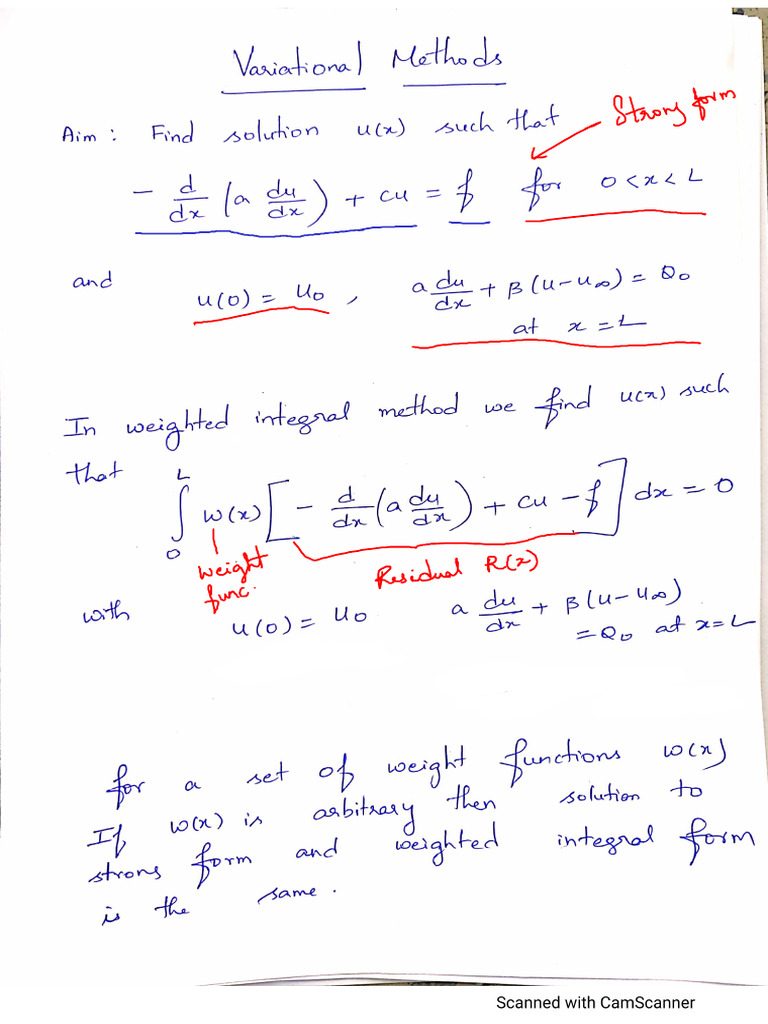 Variational Methods
Aim: Find solution u(x) such that
Strong form
- d/dx (a du/dx) + cu = f for 0<x<L
and u(0) = u₀, a du/dx + β(u-u∞) = Q₀
at x=L
In weighted integral method we find u(x) such
that ∫₀ᴸ w(x) [- d/dx (a du/dx) + cu - f] dx = 0
weight func. Residual R(x)
with u(0) = u₀ a du/dx + β(u-u∞)
= Q₀ at x=L
for a set of weight functions w(x)
If w(x) is arbitrary then solution to
strong form and weighted integral form
is the same.
Scanned with CamScanner